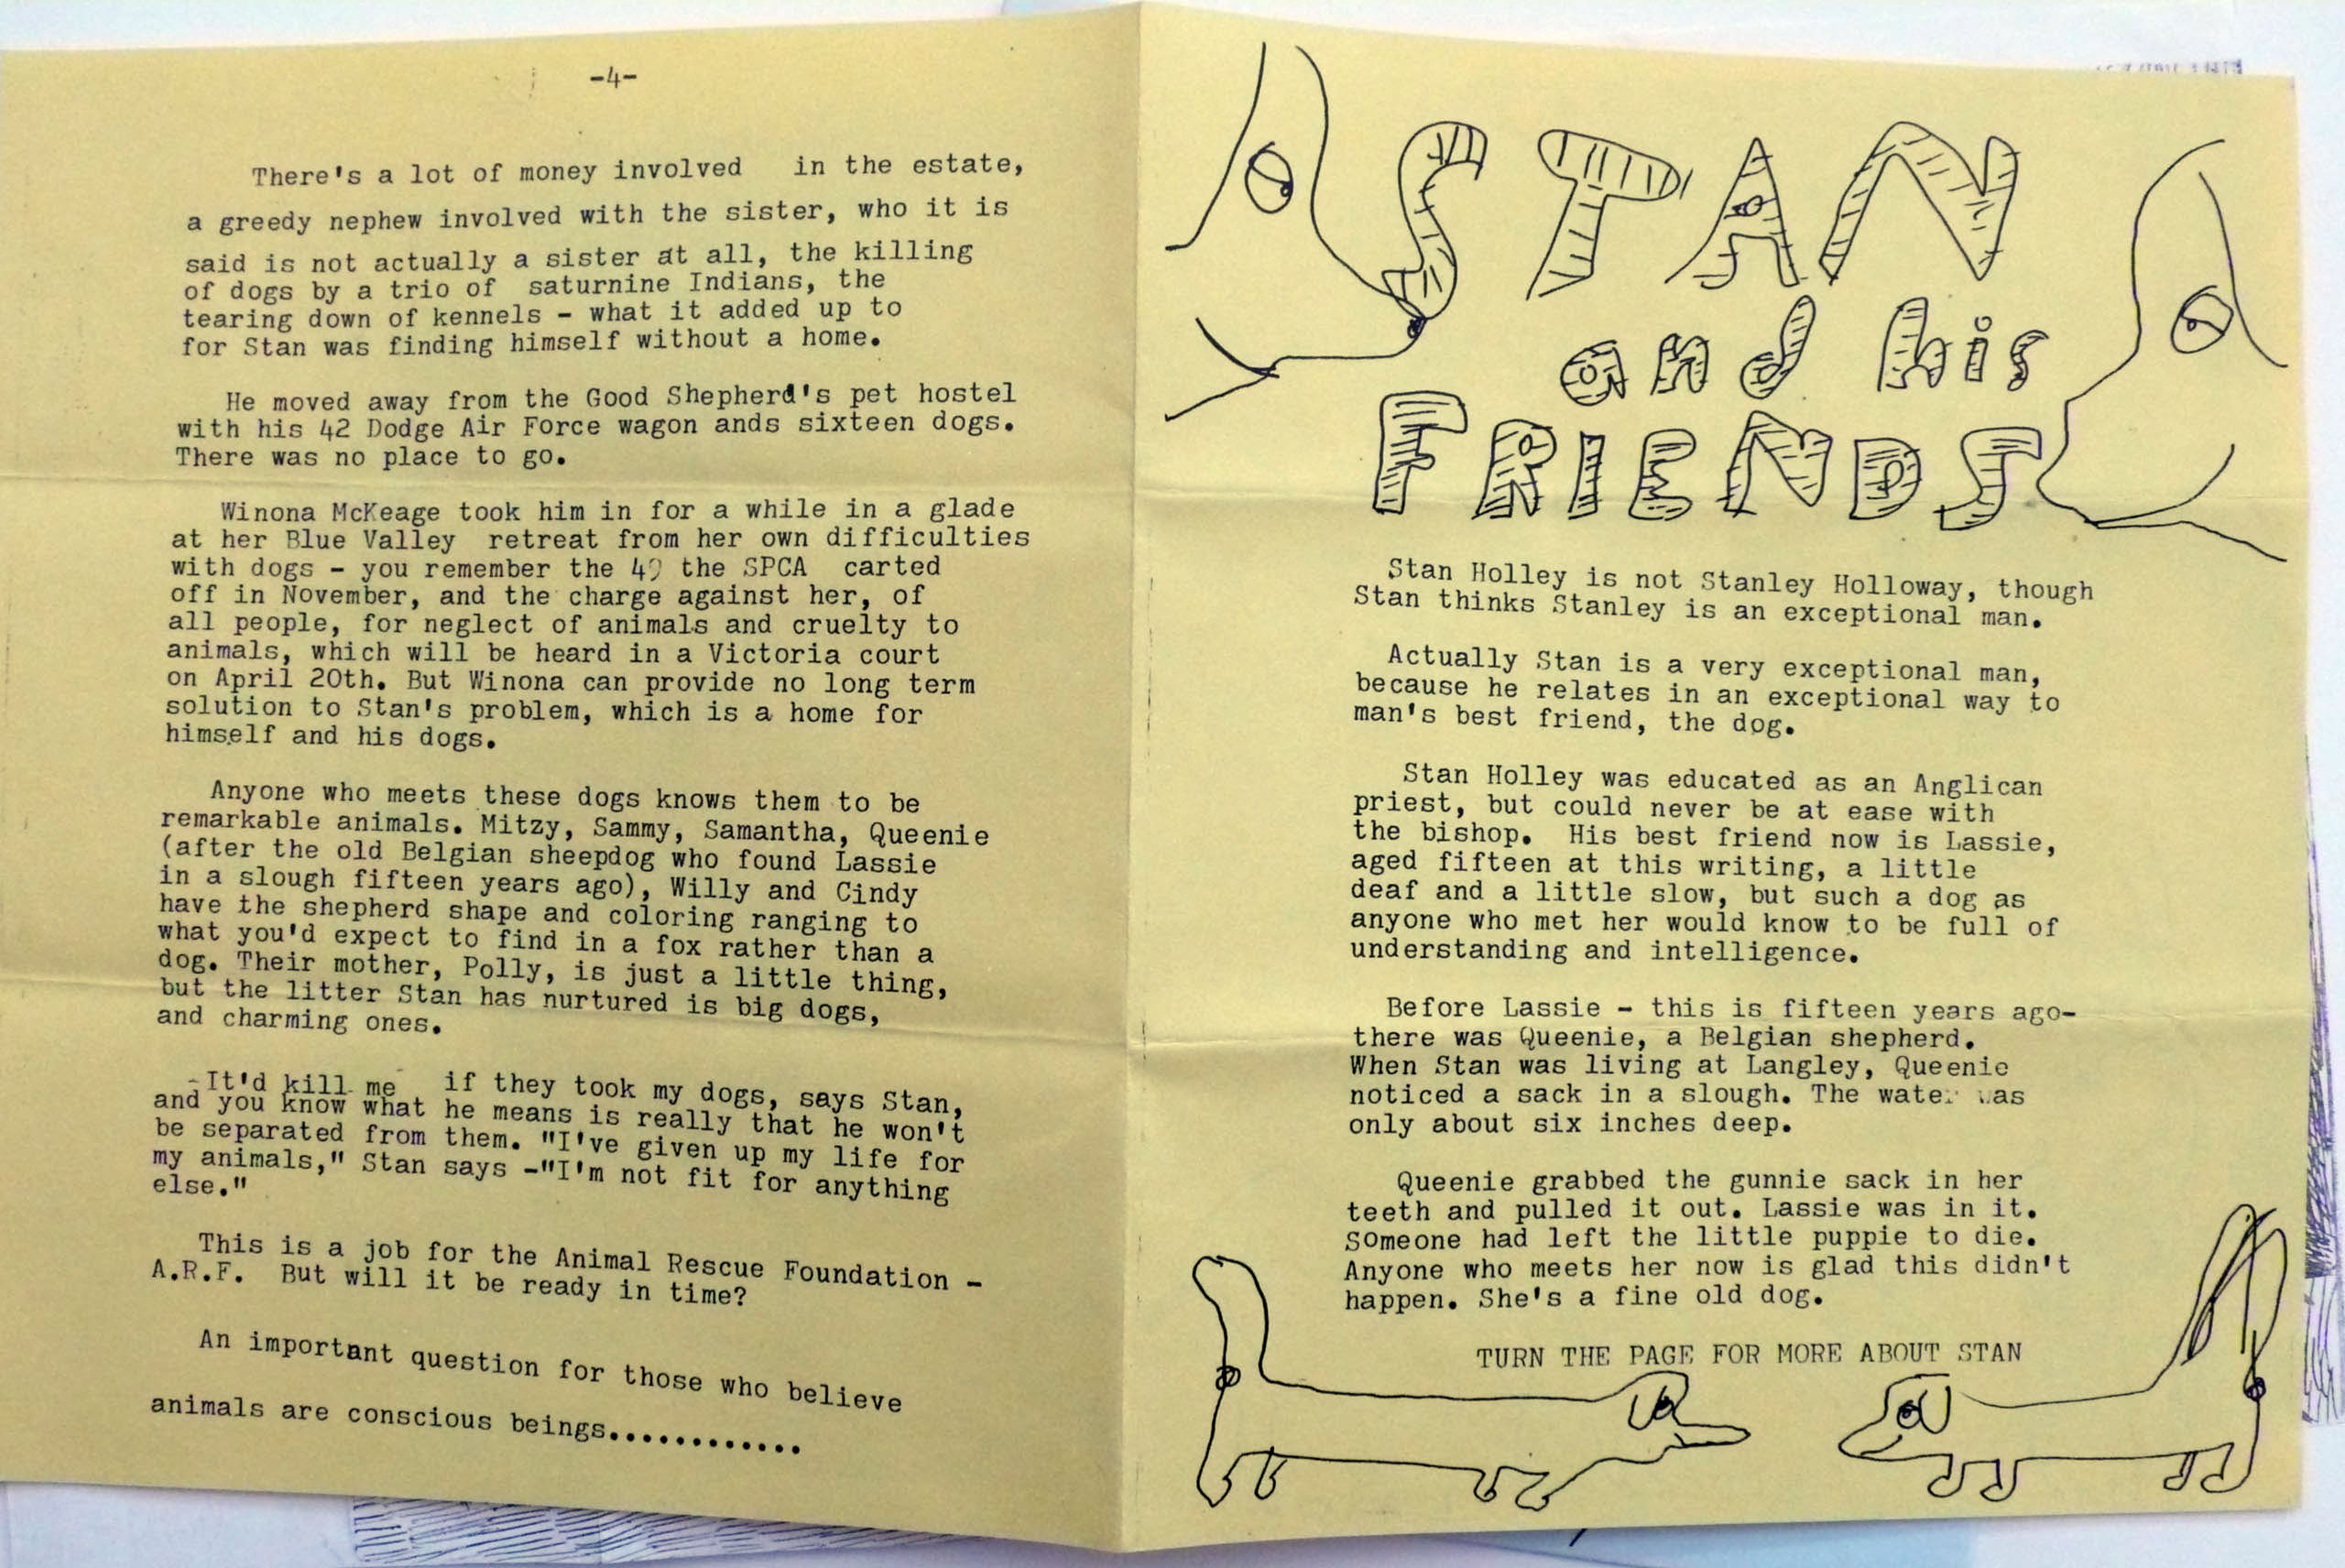 -4-
There's a lot of money involved in the estate,
a greedy nephew involved with the sister, who it is
said is not actually a sister at all, the killing
of dogs by a trio of saturnine Indians, the
tearing down of kennels - what it added up to
for Stan was finding himself without a home.
He moved away from the Good Shepherd's pet hostel
with his 42 Dodge Air Force wagon ands sixteen dogs.
There was no place to go.
Winona McKeage took him in for a while in a glade
at her Blue Valley retreat from her own difficulties
with dogs - you remember the the SPCA carted
off in November, and the charge against her, of
all people, for neglect of animals and cruelty to
animals, which will be heard in a Victoria court
on April 20th. But Winona can provide no long term
solution to Stan's problem, which is a home for
himself and his dogs.
Anyone who meets these dogs knows them to be
remarkable animals. Mitzy, Sammy, Samantha, Queenie
(after the old Belgian sheepdog who found Lassie
in a slough fifteen years ago), Willy and Cindy
have the shepherd shape and coloring ranging to
what you'd expect to find in a fox rather than a
dog. Their mother, Polly, is just a little thing,
but the litter Stan has nurtured is big dogs,
and charming ones.
-It'd kill me if they took my dogs, says Stan,
and you know what he means is really that he won't
be separated from them. "I've given up my life for
my animals," Stan says -"I'm not fit for anything
else."
This is a job for the Animal Rescue Foundation -
A.R.F. But will it be ready in time?
An important question for those who believe
animals are conscious beings............
STAN
and his
FRIENDS
Stan Holley is not Stanley Holloway, though
Stan thinks Stanley is an exceptional man.
Actually Stan is a very exceptional man,
because he relates in an exceptional way to
man's best friend, the dog.
Stan Holley was educated as an Anglican
priest, but could never be at ease with
the bishop. His best friend now is Lassie,
aged fifteen at this writing, a little
deaf and a little slow, but such a dog as
anyone who met her would know to be full of
understanding and intelligence.
Before Lassie - this is fifteen years ago-
there was Queenie, a Belgian shepherd.
When Stan was living at Langley, Queenie
noticed a sack in a slough. The water was
only about six inches deep.
Queenie grabbed the gunnie sack in her
teeth and pulled it out. Lassie was in it.
Someone had left the little puppie to die.
Anyone who meets her now is glad this didn't
happen. She's a fine old dog.
TURN THE PAGE FOR MORE ABOUT STAN